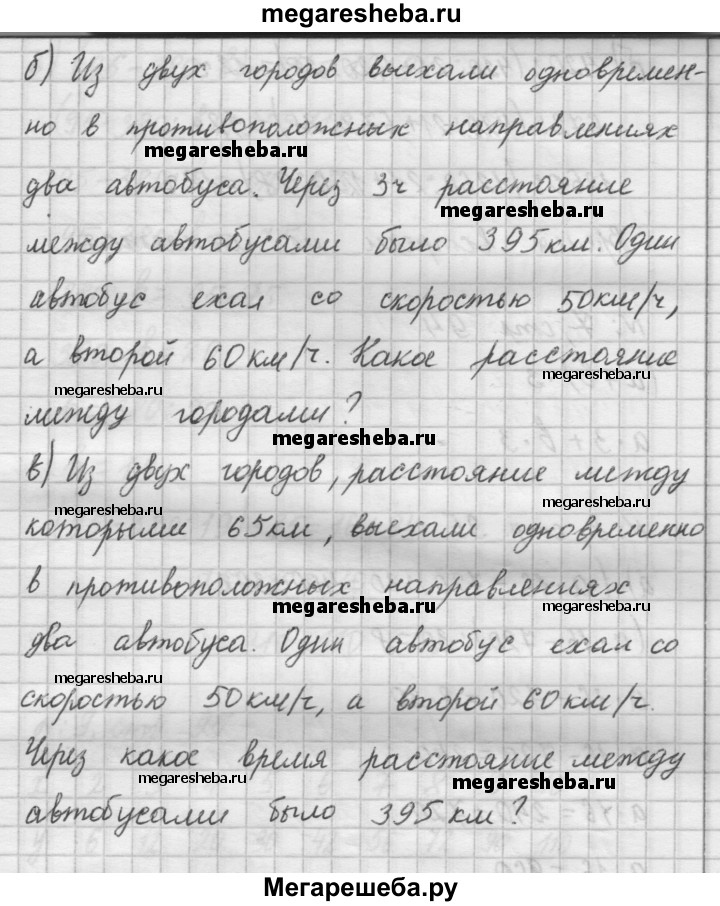 megaresheba.ru
б) Из двух городов выехали одновремен-
но в противоположных направлениях
megaresheba.ru
два автобуса. Через 3ч расстояние
megaresheba.ru
между автобусами было 395км. Один
автобус ехал со скоростью 50км/ч,
а второй 60км/ч. Какое расстояние
megaresheba.ru megaresheba.ru
между городами?
megaresheba.ru
в) Из двух городов, расстояние между
megaresheba.ru
которыми 65км, выехали одновременно
в противоположных направлениях
megaresheba.ru megaresheba.ru
два автобуса. Один автобус ехал со
megaresheba.ru
скоростью 50км/ч, а второй 60км/ч.
Через какое время расстояние между
megaresheba.ru megaresheba.ru
автобусами было 395км?
Мегарешеба.ру